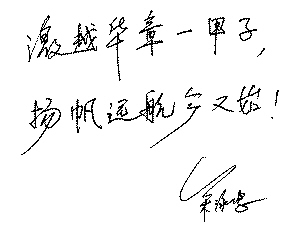 激越华章一甲子,
扬帆远航今又始!